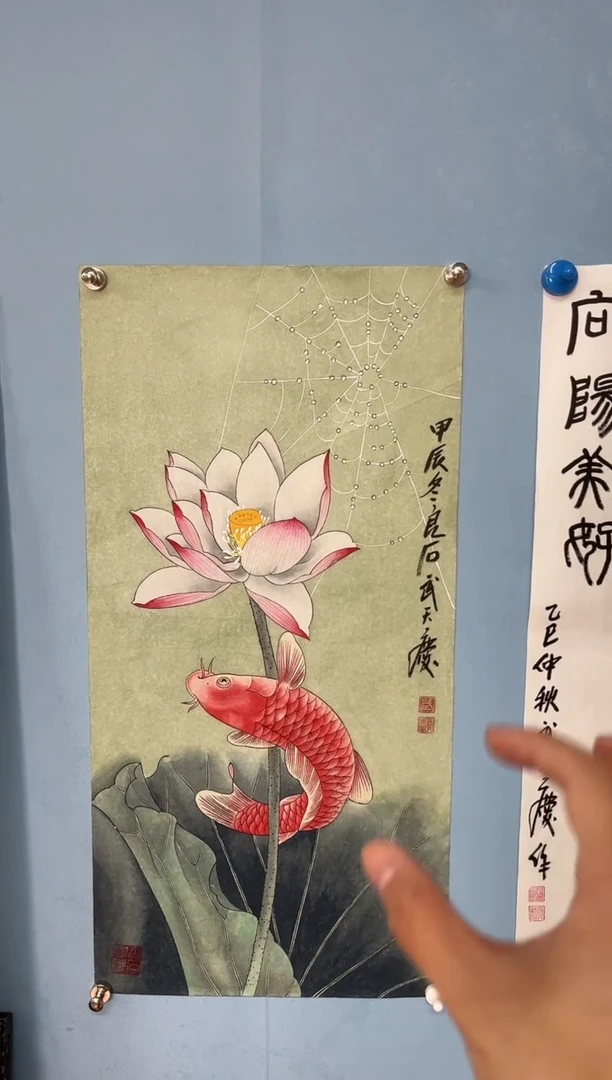 甲辰冬良石武天慶
向陽美好
乙巳仲秋
慶作